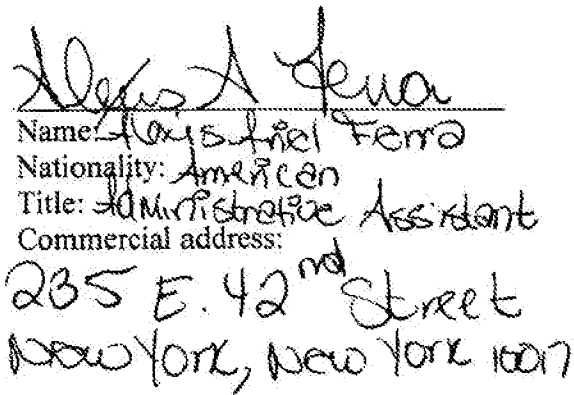 Alexis A Ferra
Name: Alexis Ariel Ferra
Nationality: American
Title: Administrative Assistant
Commercial address:
235 E. 42nd Street
New York, New York 10017